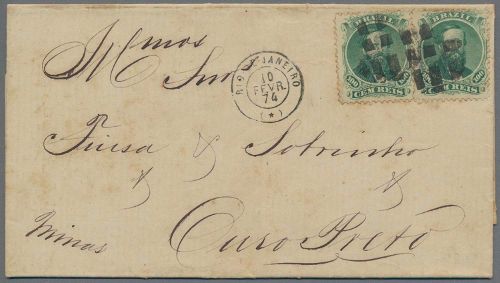 BRAZIL BRAZIL
100 CEM REIS 100 CEM REIS 100
Illmos
Snrs
RIO DE JANEIRO
10
FEVR.
74
(*)
Fiusa & Sobrinho
Minas
Ouro Preto